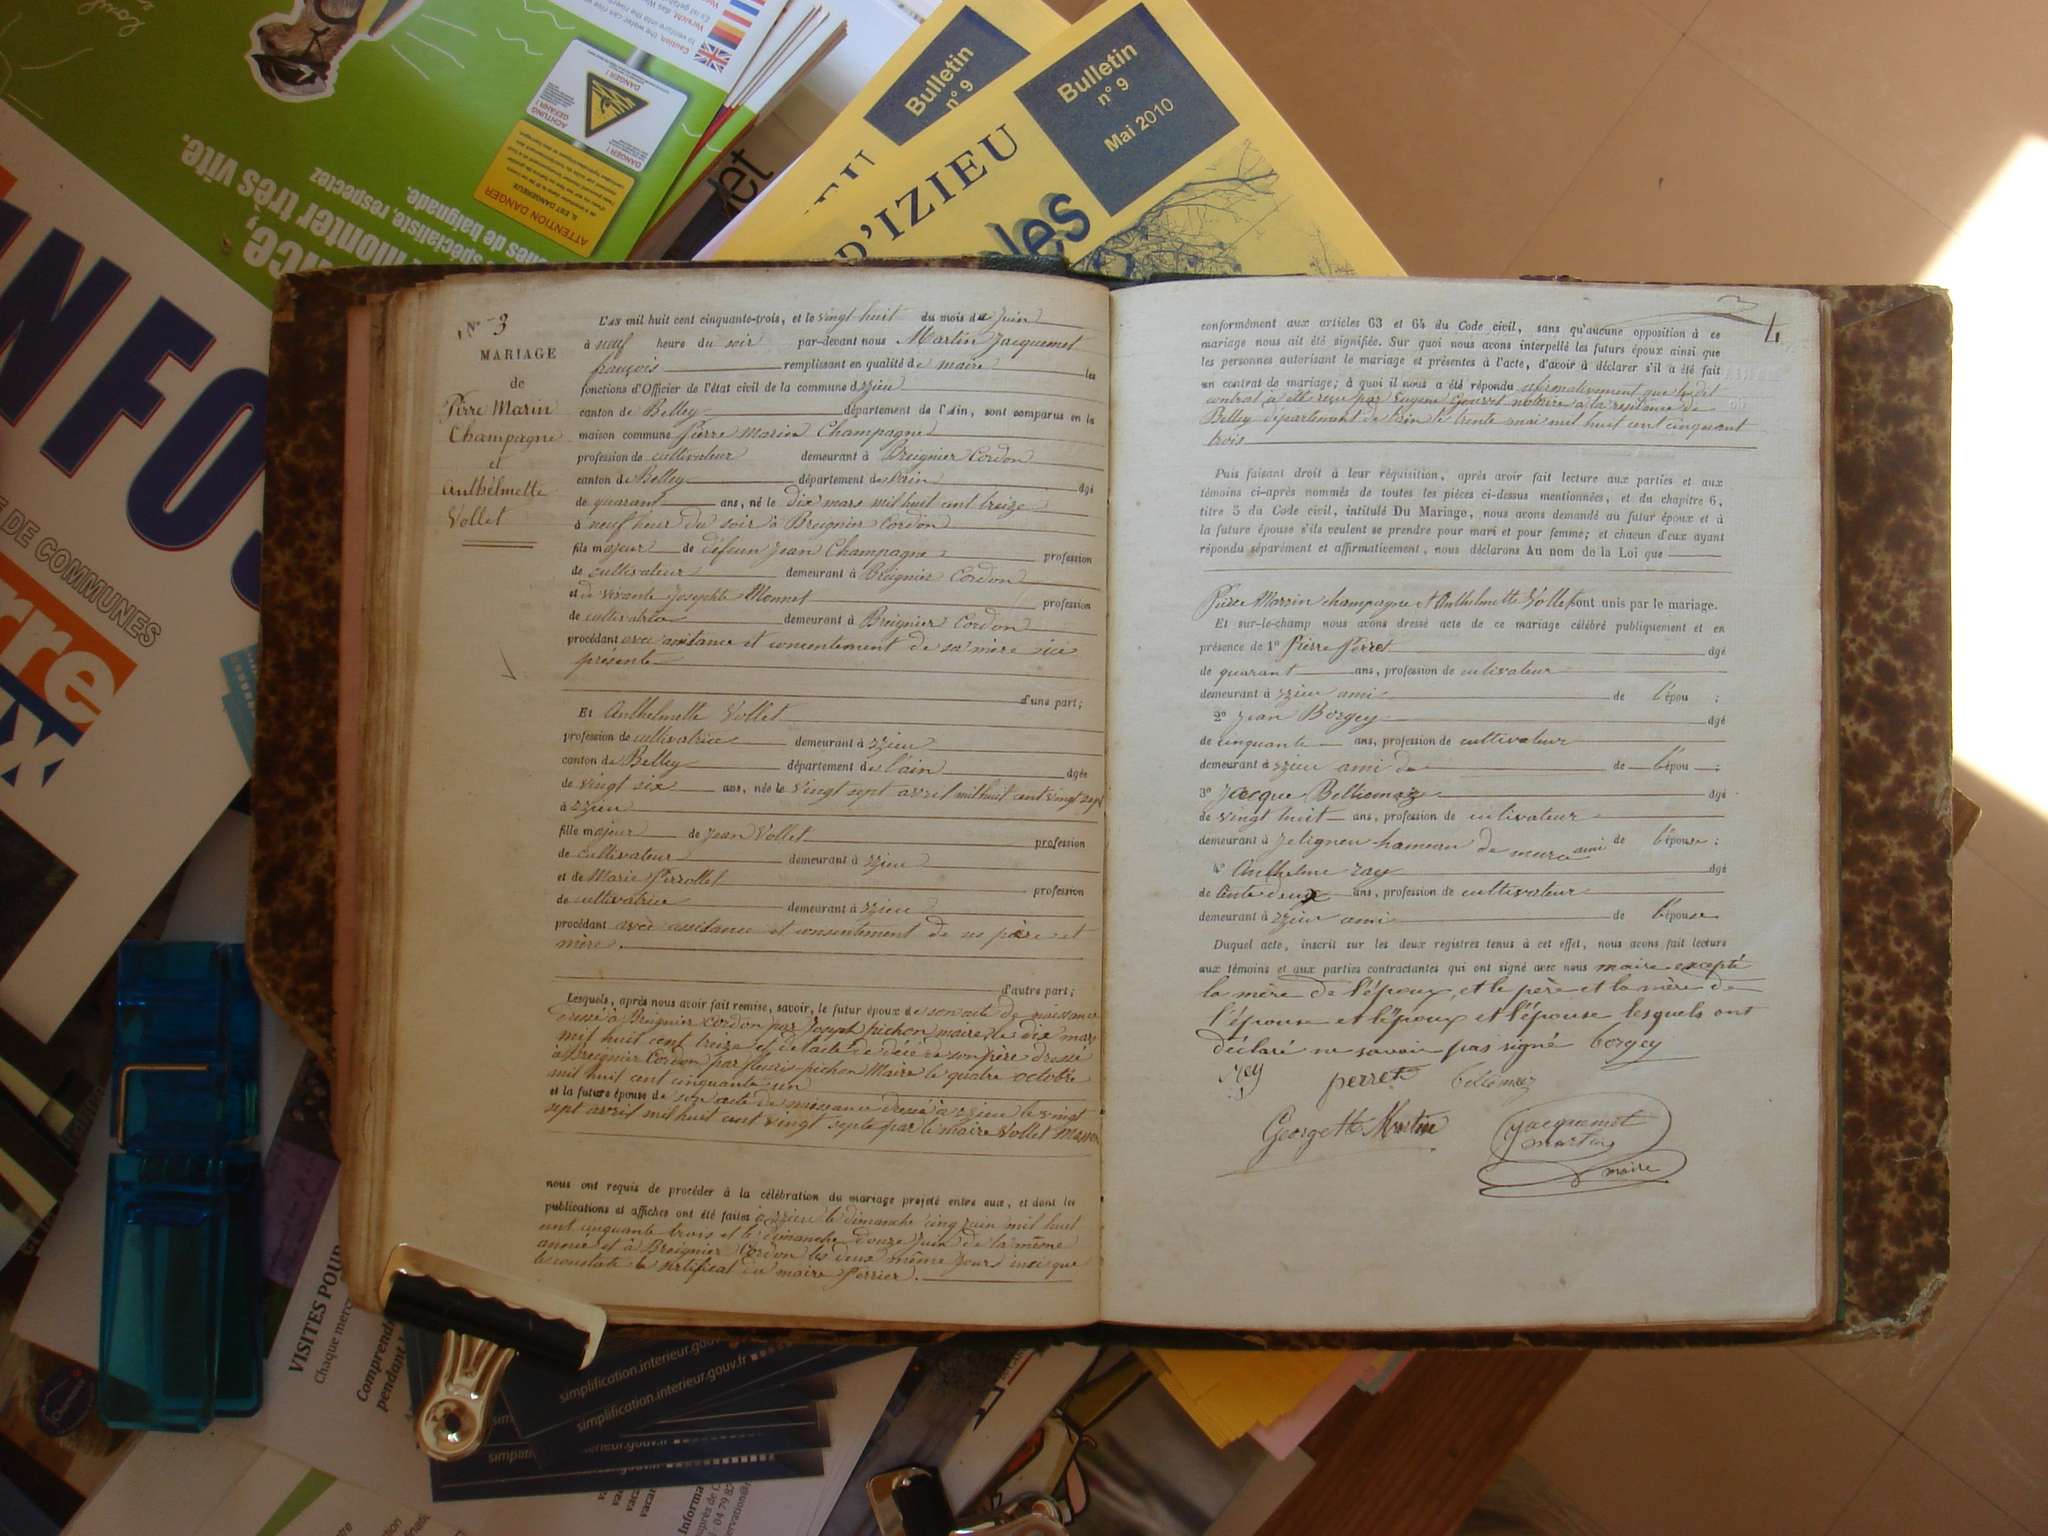 Bulletin
n° 9
Bulletin
n° 9
Mai 2010
D'IZIEU
ATTENTION DANGER
DANGER !
ACHTUNG
GEFAHR !
DANGER !
monter très vite.
spécialiste, respectez
de baignade.
INFOS
E DE COMMUNES
VISITES POU
Chaque merc
Comprend
pendant l
simplification.interieur.gouv.fr
simplification.interieur.gouv.fr
N° 3
MARIAGE
de
Pirre Marin
Champagne
et
Anthelmette
Vollet
L'AN mil huit cent cinquante-trois, et le vingt huit du mois de Juin
à neuf heure du soir par-devant nous Martin Jacquemet
françois remplissant en qualité de maire les
fonctions d'Officier de l'état civil de la commune d'izieu
canton de Belley département de l'Ain, sont comparus en la
maison commune Pierre Marin Champagne
profession de cultivateur demeurant à Breignier Cordon
canton de Belley département de l'ain âgé
de quarant ans, né le Dix mars mil huit cent treize
à neuf heur du soir à Breignier Cordon
fils majeur de défeun Jean Champagne profession
de cultivateur demeurant à Breignier Cordon
et de vivante Josephte Monnet profession
de cultivatrice demeurant à Breignier Cordon
procédant avec assistance et consentement de sa mère ici
présente
d'une part;
Et Anthelmette Vollet
profession de cultivatrice demeurant à izieu
canton de Belley département de l'ain âgée
de vingt six ans, née le vingt sept avril mil huit cent vingt sept
à izieu
fille majeur de Jean Vollet profession
de cultivateur demeurant à izieu
et de Marie Perrollet profession
de cultivatrice demeurant à izieu
procédant avec assistance et consentement de ses père et
mère
d'autre part;
Lesquels, après nous avoir fait remise, savoir, le futur époux de son acte de naissance
dressé à Breignier Cordon par Joseph pichon maire, le dix mars
mil huit cent treize et de l'acte de décé de son père dressé
à Breignier Cordon par fleuri pichon Maire le quatre octobre
mil huit cent cinquante un
et la future épouse de son acte de naissance dressé à izieu le vingt
sept avril mil huit cent vingt septe par le maire Vollet
nous ont requis de procéder à la célébration du mariage projeté entre eux, et dont les
publications et affiches ont été faites à izieu le dimanche cinq juin mil huit
cent cinquante trois et le dimanche douze Juin de la même
année et à Breignier Cordon les deux même jours insi que
le constate le sertificat du maire Perrier.
4
conformément aux articles 63 et 64 du Code civil, sans qu'aucune opposition à ce
mariage nous ait été signifiée. Sur quoi nous avons interpellé les futurs époux ainsi que
les personnes autorisant le mariage et présentes à l'acte, d'avoir à déclarer s'il a été fait
un contrat de mariage; à quoi il nous a été répondu afirmativement que ledit
contrat a été reçu par Eugène Gouvet notaire à la residance de
Belley département de l'ain le trente mai mil huit cent cinquant
trois
Puis faisant droit à leur réquisition, après avoir fait lecture aux parties et aux
témoins ci-après nommés de toutes les pièces ci-dessus mentionnées, et du chapitre 6,
titre 5 du Code civil, intitulé Du Mariage, nous avons demandé au futur époux et à
la future épouse s'ils veulent se prendre pour mari et pour femme; et chacun d'eux ayant
répondu séparément et affirmativement, nous déclarons Au nom de la Loi que
Pierre Marrin champagne et Anthelmette Vollet sont unis par le mariage.
Et sur-le-champ nous avons dressé acte de ce mariage célébré publiquement et en
présence de 1° Pierre Perret âgé
de quarant ans, profession de cultivateur
demeurant à izieu ami de l'épou ;
2° Jean Borgey âgé
de cinquante ans, profession de cultivateur
demeurant à izieu ami de de l'épou ;
3° Jacque Bellemaz âgé
de vingt huit ans, profession de cultivateur
demeurant à Jelignen hameau de mure ami de l'épouse ;
4° Anthelme rey âgé
de trente deux ans, profession de cultivateur
demeurant à izieu ami de l'épouse
Duquel acte, inscrit sur les deux registres tenus à cet effet, nous avons fait lecture
aux témoins et aux parties contractantes qui ont signé avec nous maire excepté
la mère de l'époux, et le père et la mère de
l'épouse et l'époux et l'épouse lesquels ont
déclaré ne savoir pas signé borgey
rey perret bellemaz
Georgette Martin
Jacquemet
martin
maire